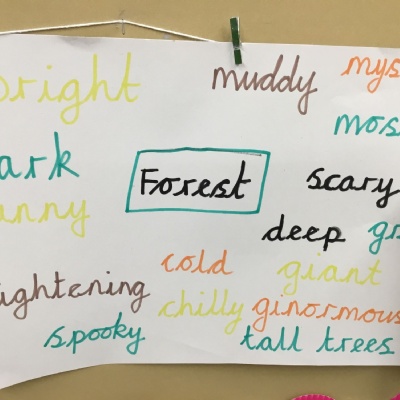 bright
muddy
mys
mos
ark
Forest
scary
unny
deep
gr
cold
giant
ightening
chilly
ginormous
spooky
tall trees